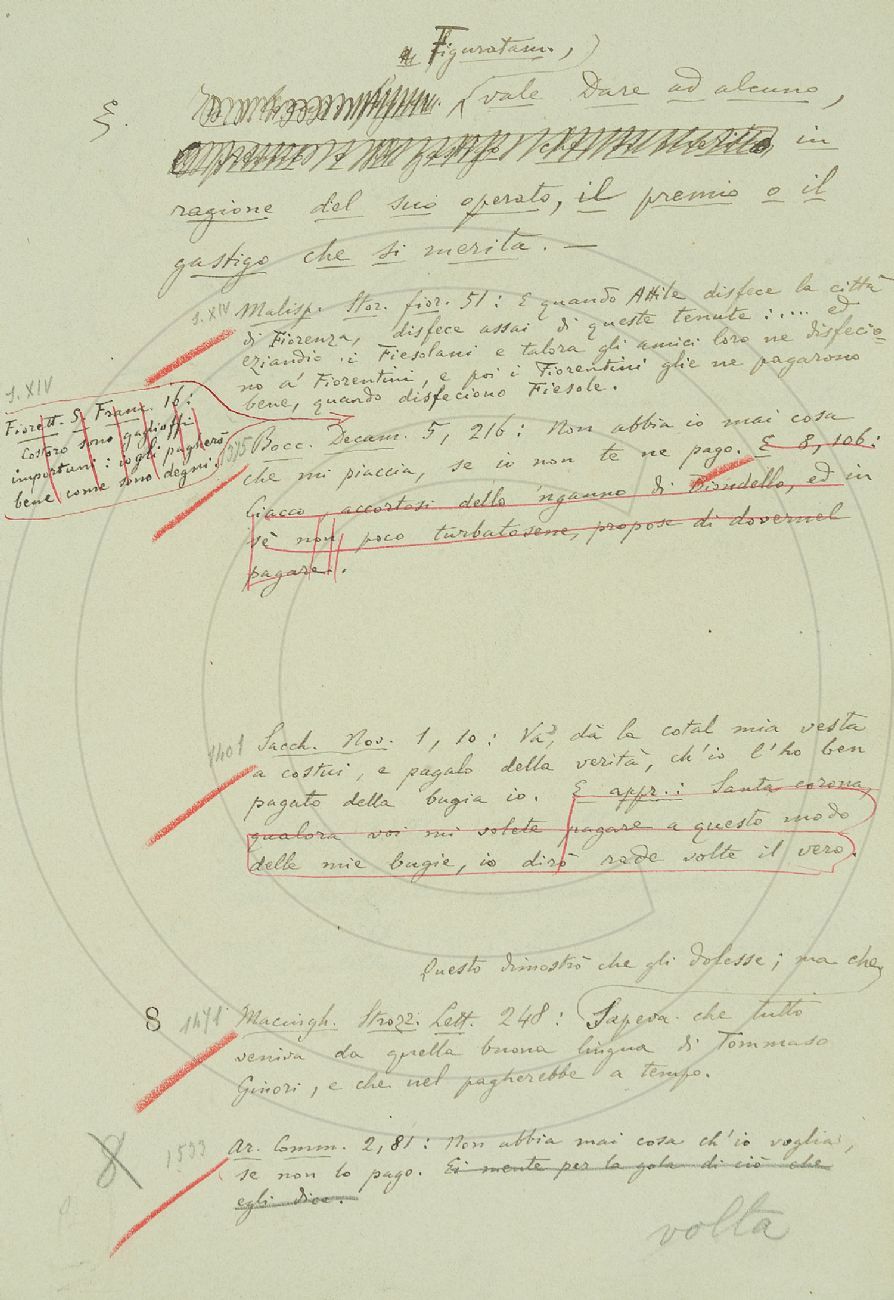 Figuratam.,
§.
vale Dare ad alcuno,
in
ragione del suo operato, il premio o il
gastigo che si merita. —
s. XIV Malisp. Stor. fior. 51: E quando Attile disfece la città
di Fiorenza, disfece assai di queste tenute: .... ed
eziandio i Fiesolani e talora gli amici loro ne disfecio=
no a' Fiorentini, e poi i Fiorentini glie ne pagarono
bene, quando disfeciono Fiesole.
s. XIV
Fiorett. S. Franc. 16:
Costoro sono gaglioffi
importuni: io gli pagherò
bene come sono degni.
Bocc. Decam. 5, 216: Non abbia io mai cosa
che mi piaccia, se io non te ne pago. E 8, 106:
Ciacco, accortosi dello 'nganno di Biondello, ed in
sè non poco turbatosene, propose di dovernel
pagare.
1401 Sacch. Nov. 1, 10: Va', dà la cotal mia vesta
a costui, e pagalo della verità, ch'io l'ho ben
pagato della bugia io. E appr.: Santa corona,
qualora voi mi volete pagare a questo modo
delle mie bugie, io dirò rade volte il vero.
Questo dimostrò che gli dolesse; ma che
8 1471 Macingh. Strozzi. Lett. 248: Sapeva che tutto
veniva da quella buona lingua di Tommaso
Ginori, e che nel pagherebbe a tempo.
8 1533 Ar. Comm. 2, 81: Non abbia mai cosa ch'io voglia,
se non lo pago. Ei mente per la gola di ciò che
egli dice.
volta